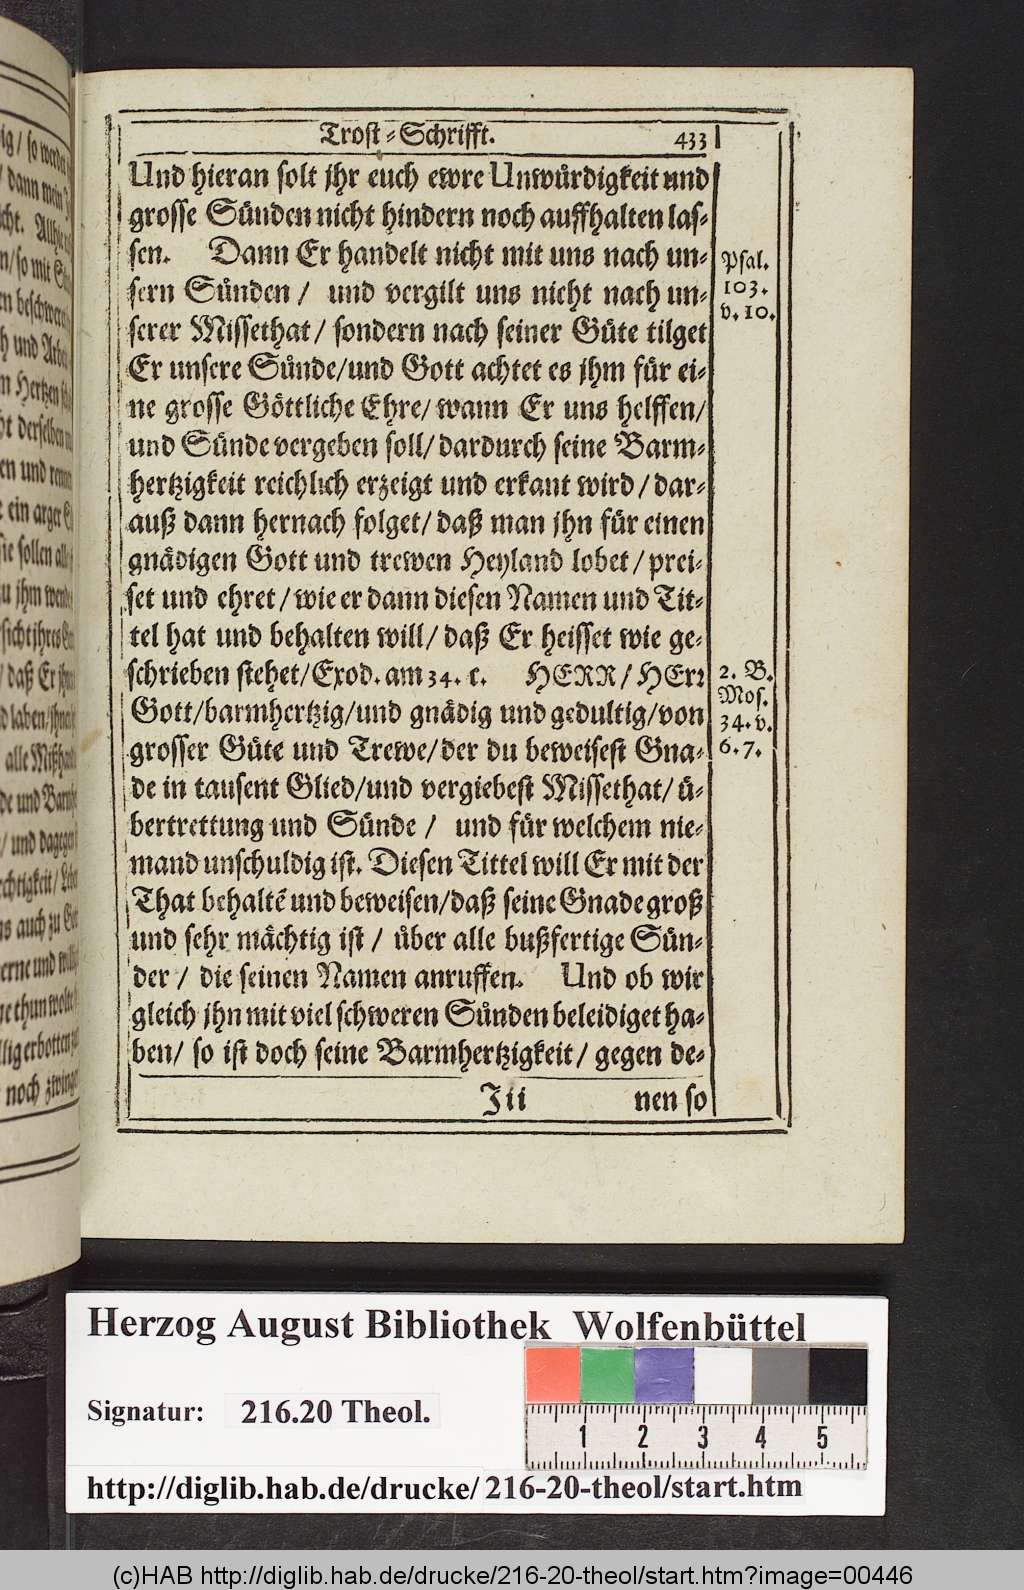 Trost-Schrifft. 433
Und hieran solt jhr euch ewre Unwürdigkeit und
grosse Sünden nicht hindern noch auffhalten las-
sen. Dann Er handelt nicht mit uns nach un-
sern Sünden / und vergilt uns nicht nach un-
serer Missethat / sondern nach seiner Güte tilget
Er unsere Sünde/und Gott achtet es jhm für ei-
ne grosse Göttliche Ehre/ wann Er uns helffen/
und Sünde vergeben soll/ dardurch seine Barm-
hertzigkeit reichlich erzeigt und erkant wird / dar-
auß dann hernach folget/ daß man jhn für einen
gnädigen Gott und trewen Heyland lobet / prei-
set und ehret / wie er dann diesen Namen und Tit-
tel hat und behalten will/ daß Er heisset wie ge-
schrieben stehet/Exod. am 34. c. HERR / HErr
Gott/barmhertzig/und gnädig und gedultig/von
grosser Güte und Trewe/der du beweisest Gna-
de in tausent Glied/und vergiebest Missethat/ ü-
bertrettung und Sünde / und für welchem nie-
mand unschuldig ist. Diesen Tittel will Er mit der
That behaltẽ und beweisen/daß seine Gnade groß
und sehr mächtig ist / über alle bußfertige Sün-
der / die seinen Namen anruffen. Und ob wir
gleich jhn mit viel schweren Sünden beleidiget ha-
ben/ so ist doch seine Barmhertzigkeit / gegen de-
Jii nen so
Psal.
103.
v. 10.
2. B.
Mos.
34. v.
6. 7.
Herzog August Bibliothek Wolfenbüttel
Signatur: 216.20 Theol.
1 2 3 4 5
http://diglib.hab.de/drucke/216-20-theol/start.htm
(c)HAB http://diglib.hab.de/drucke/216-20-theol/start.htm?image=00446